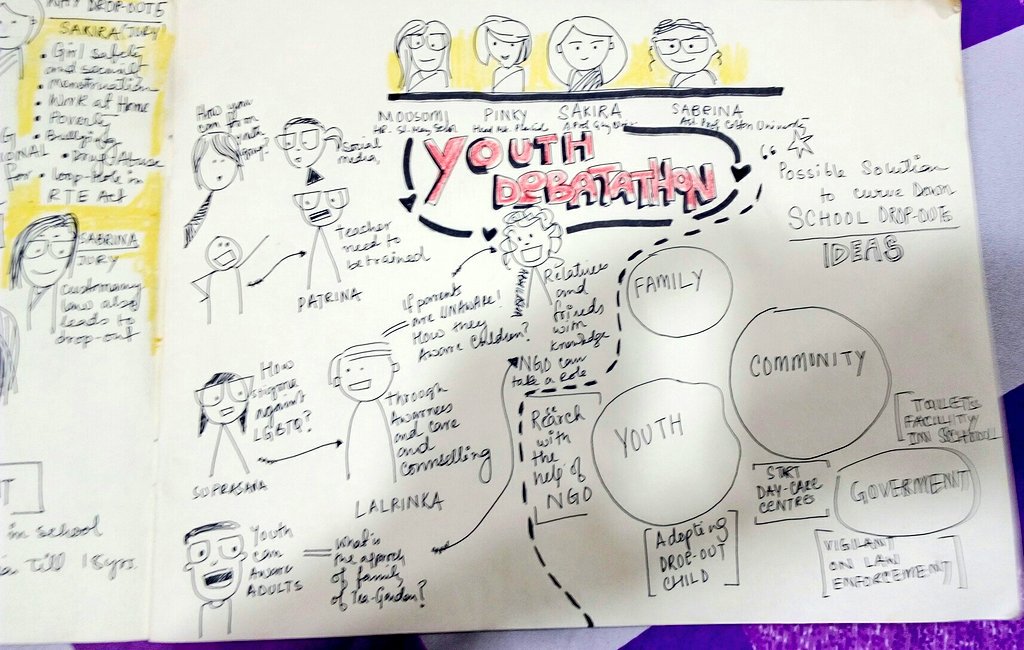 WHY DROP-OUTS
SAKIRA (JURY)
• Girl safety
and
• Menstruation
• Work at Home
• Poverty
• Bullying
• Drug Abuse
• loop-Hole in
RTE Act
SABRINA
JURY
customary
law also
leads to
drop-out
in school
till 18yrs.
MOUSOMI
PINKY
SAKIRA
SABRINA
Ast. Prof. Cotton University
YOUTH
DEBATATHON
How you
can
group?
Social
media,
Teacher
need to
be trained
PATRINA
if parents
are UNAWARE!
How they
Aware Children?
Relatives
and
friends
with
knowledge
NGO can
take a Role
How
against
LGBTQ?
SUPRASANA
through
Awarness
and care
and
counselling
LALRINKA
Youth
can
Aware
ADULTS
What is
the approch
of family
of Tea-Garden?
Possible Solution
to curve Down
SCHOOL DROP-OUTS
IDEAS
FAMILY
COMMUNITY
YOUTH
GOVERMENT
Reserch
with
the
help of
NGO
Adopting
DROP-OUT
CHILD
START
DAY-CARE
CENTRE
TOILETS
FACILITY
IN SCHOOL
VIGILANT
ON LAW
ENFORCEMENT